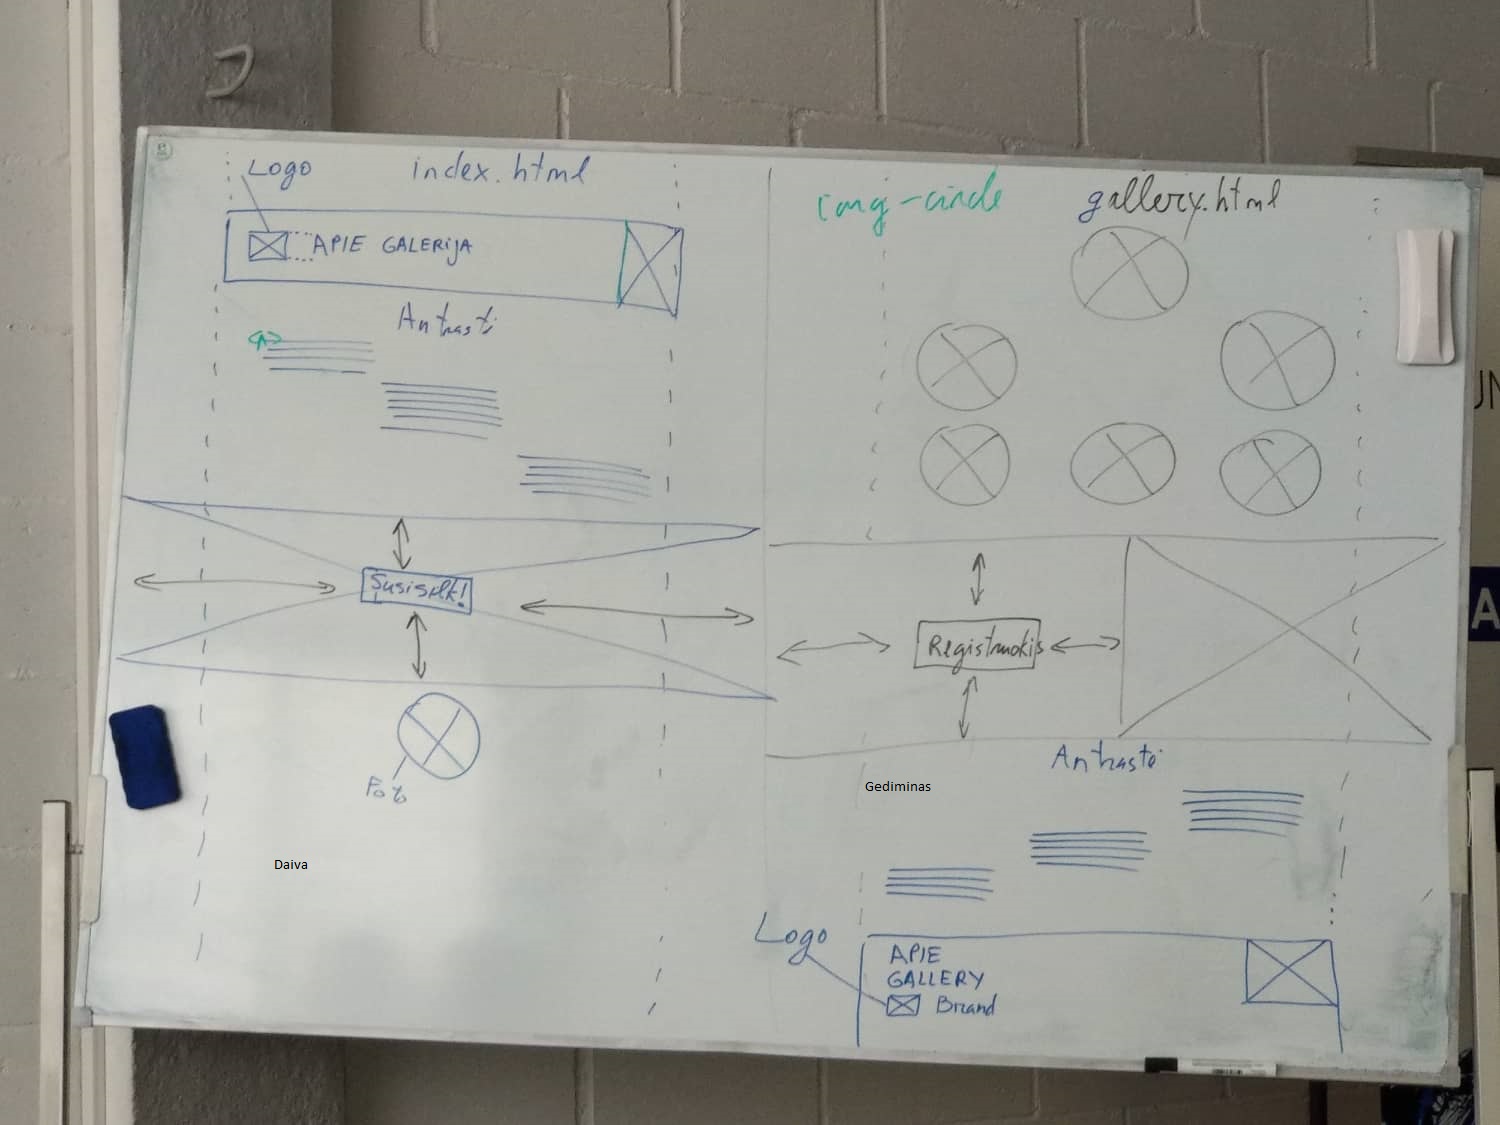 Logo
index.html
APIE GALERIJA
Antrastė
Susisiek!
Foto
Daiva
img-circle
gallery.html
Registruokis
Antrastė
Gediminas
Logo
APIE
GALLERY
Brand
UN
A